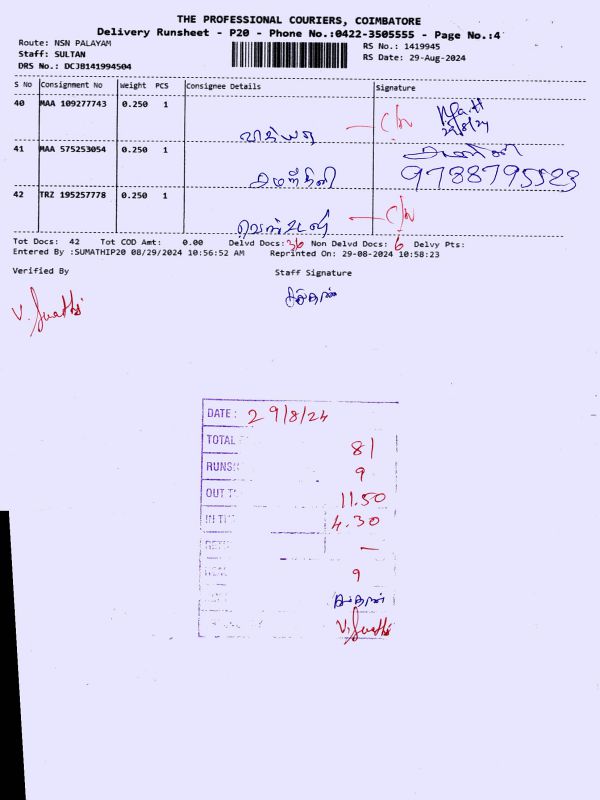 THE PROFESSIONAL COURIERS, COIMBATORE
Delivery Runsheet - P20 - Phone No.:0422-3505555 - Page No.:4
Route: NSN PALAYAM
RS No.: 1419945
Staff: SULTAN
RS Date: 29-Aug-2024
DRS No.: DCJB141994504
S No Consignment No Weight PCS Consignee Details Signature
40 MAA 109277743 0.250 1
C/N
29/8/24
41 MAA 575253054 0.250 1
9788795523
42 TRZ 195257778 0.250 1
C/N
Tot Docs: 42 Tot COD Amt: 0.00 Delvd Docs: 36 Non Delvd Docs: 6 Delvy Pts:
Entered By :SUMATHIP20 08/29/2024 10:56:52 AM Reprinted On: 29-08-2024 10:58:23
Verified By Staff Signature
V. Swathi
DATE: 29/8/24
TOTAL 81
RUNSH 9
OUT T 11.50
IN TI 4.30
—
9
V. Swathi